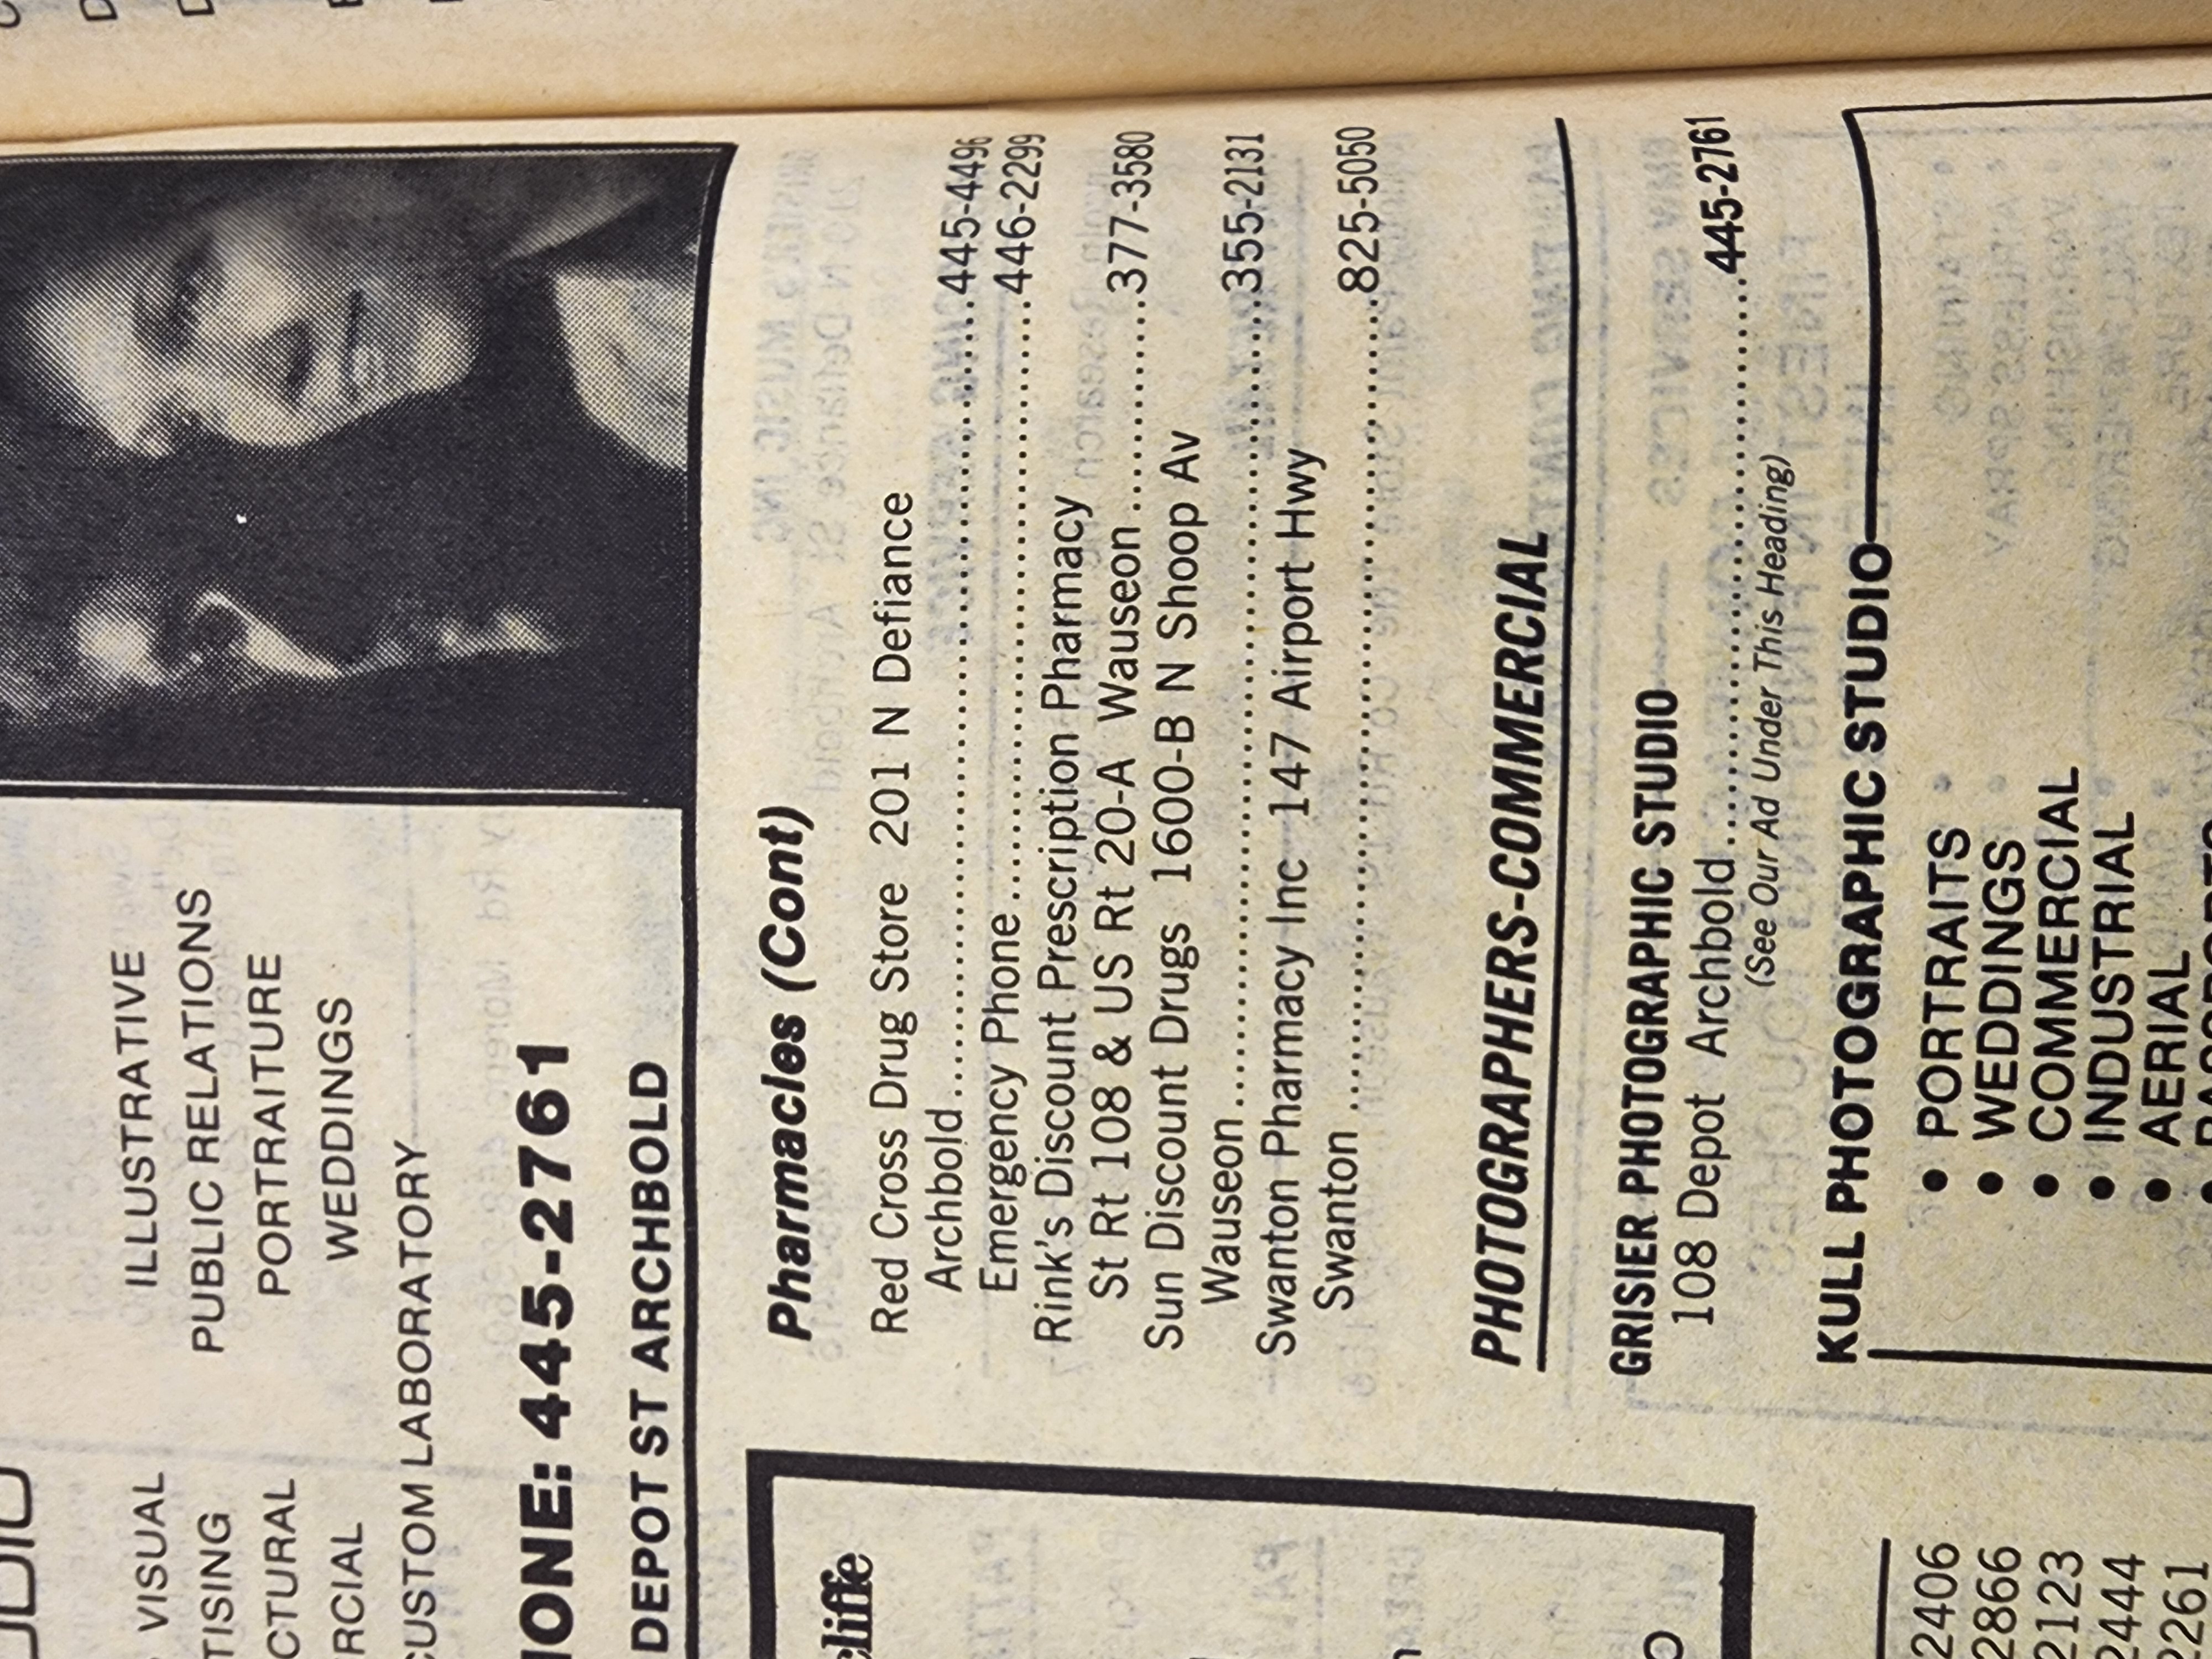 VISUAL ILLUSTRATIVE
PUBLIC RELATIONS
PORTRAITURE
WEDDINGS
CUSTOM LABORATORY
445-2761
DEPOT ST ARCHBOLD
Pharmacies (Cont)
Red Cross Drug Store 201 N Defiance
Archbold..........445-4496
Emergency Phone..........446-2299
Rink's Discount Prescription Pharmacy
St Rt 108 & US Rt 20-A Wauseon..........377-3580
Sun Discount Drugs 1600-B N Shoop Av
Wauseon..........355-2131
Swanton Pharmacy Inc 147 Airport Hwy
Swanton..........825-5050
PHOTOGRAPHERS-COMMERCIAL
GRISIER PHOTOGRAPHIC STUDIO
108 Depot Archbold..........445-2761
(See Our Ad Under This Heading)
KULL PHOTOGRAPHIC STUDIO
• PORTRAITS
• WEDDINGS
• COMMERCIAL
• INDUSTRIAL
• AERIAL
2406
2866
2123
2444
2261